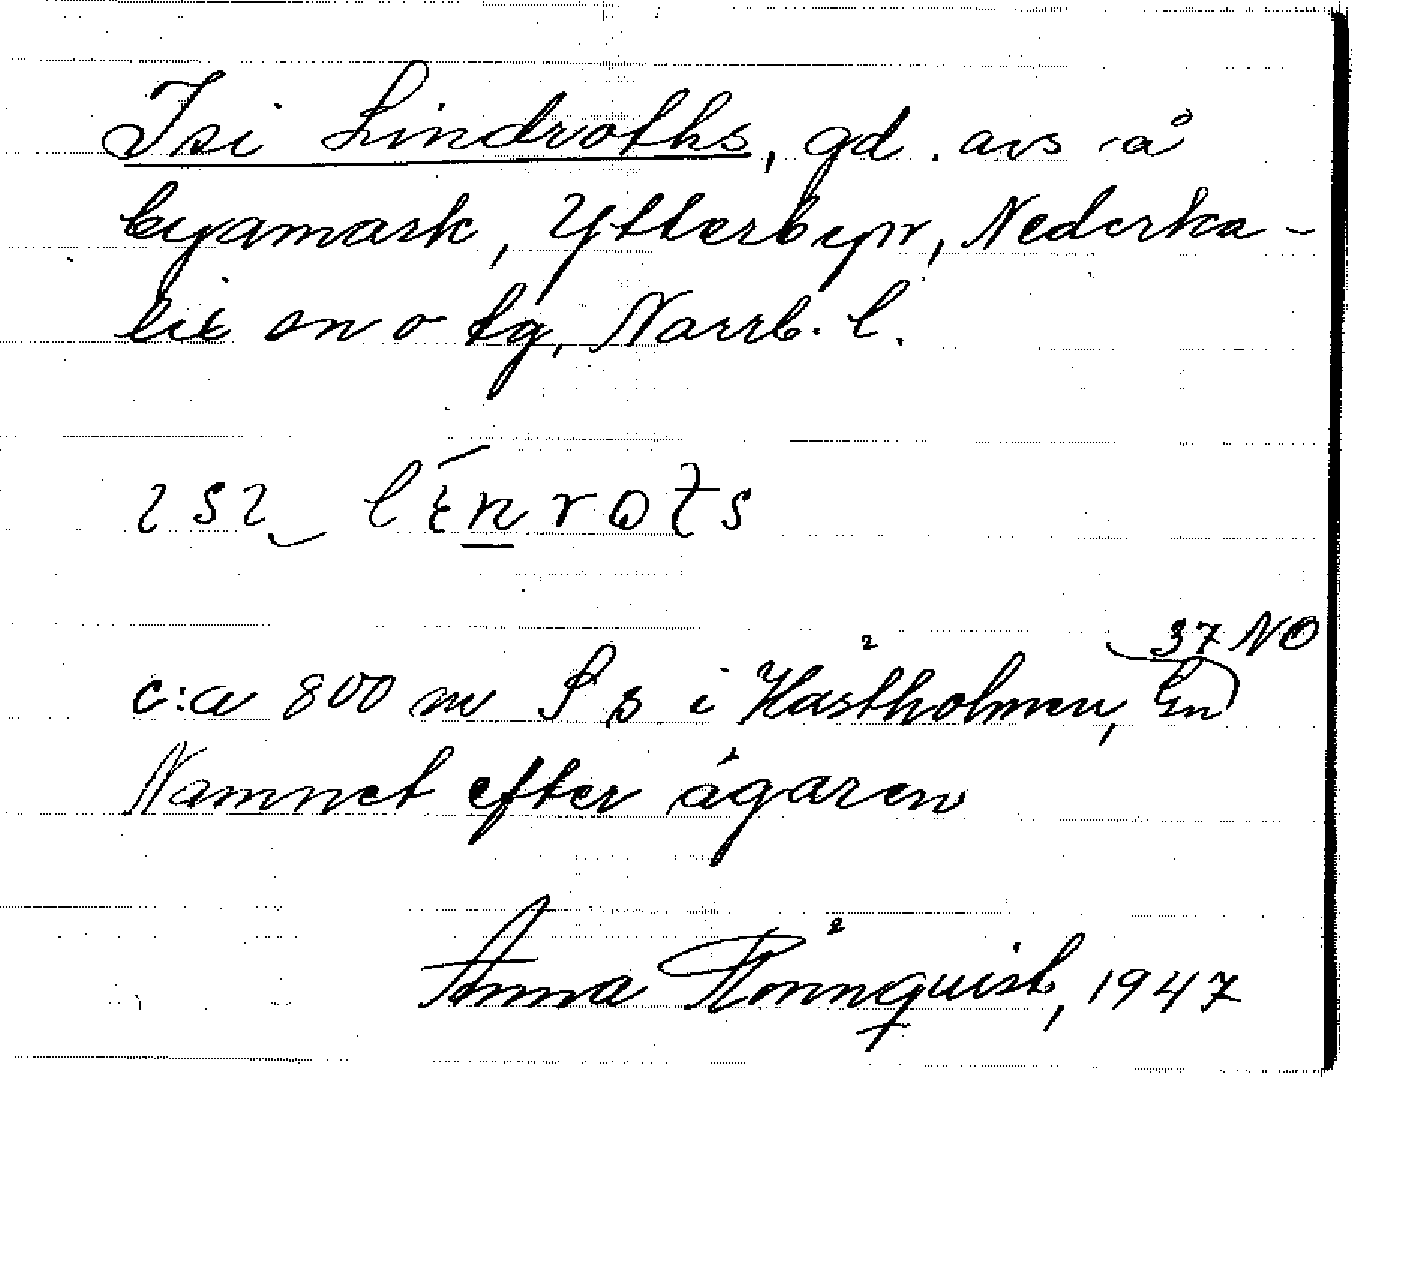 Isi Lindroths, gd. avs å
byamark, Ytterbyn, Nederka-
lix sn o tg, Norrb. l.
ɩsɩ lɛ́nrɷts
37 NO
c:a 800 m S B i Hästholmen, En
Namnet efter ägaren
Anna Rönnquist, 1947